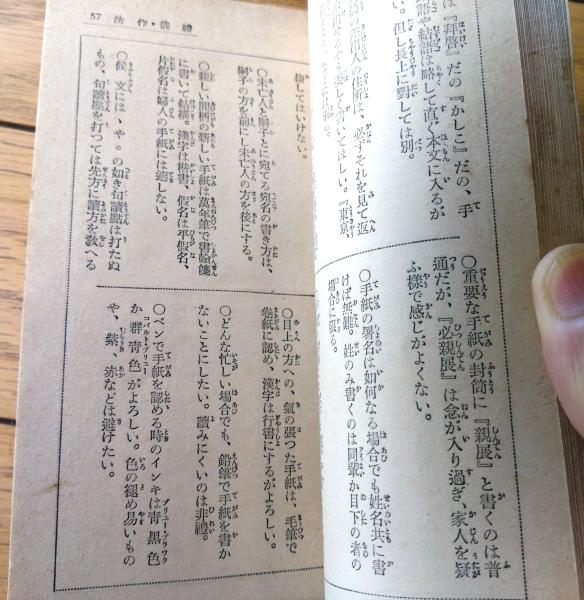 は『拜啓』だの『かしこ』だの、手
語や結語は略して直ぐ本文に入るが
い。但し長上に對しては別。
○重要な手紙の封筒に『親展』と書くのは普
通だが、『必親展』は念が入り過ぎ、家人を疑
ふ樣で感じがよくない。
○手紙の署名は如何なる場合でも姓名共に書
けば無難。姓のみ書くのは同輩か目下の者の
場合に限る。
禮儀・作法 57
捨してはいけない。
○未亡人と嗣子とに宛てる宛名の書き方は、
嗣子の方を前にし未亡人の方を後にする。
○親しい間柄の新しい手紙は萬年筆で書翰箋
に書いて結構。漢字は楷書、假名は平假名、
片假名は婦人の手紙には適しない。
○候文には、や。の如き句讀點は打たぬ
もの、句讀點を打つては先方に讀方を敎へる
○目上の方への、氣の張つた手紙は、毛筆で
卷紙に認め、漢字は行書にするがよろしい。
○どんな忙しい場合でも、鉛筆で手紙を書か
ないことにしたい。讀みにくいのは非禮。
○ペンで手紙を認める時のインキは靑黑色
か群靑色がよろしい。色の褪め易いもの
や、紫、赤などは避けたい。